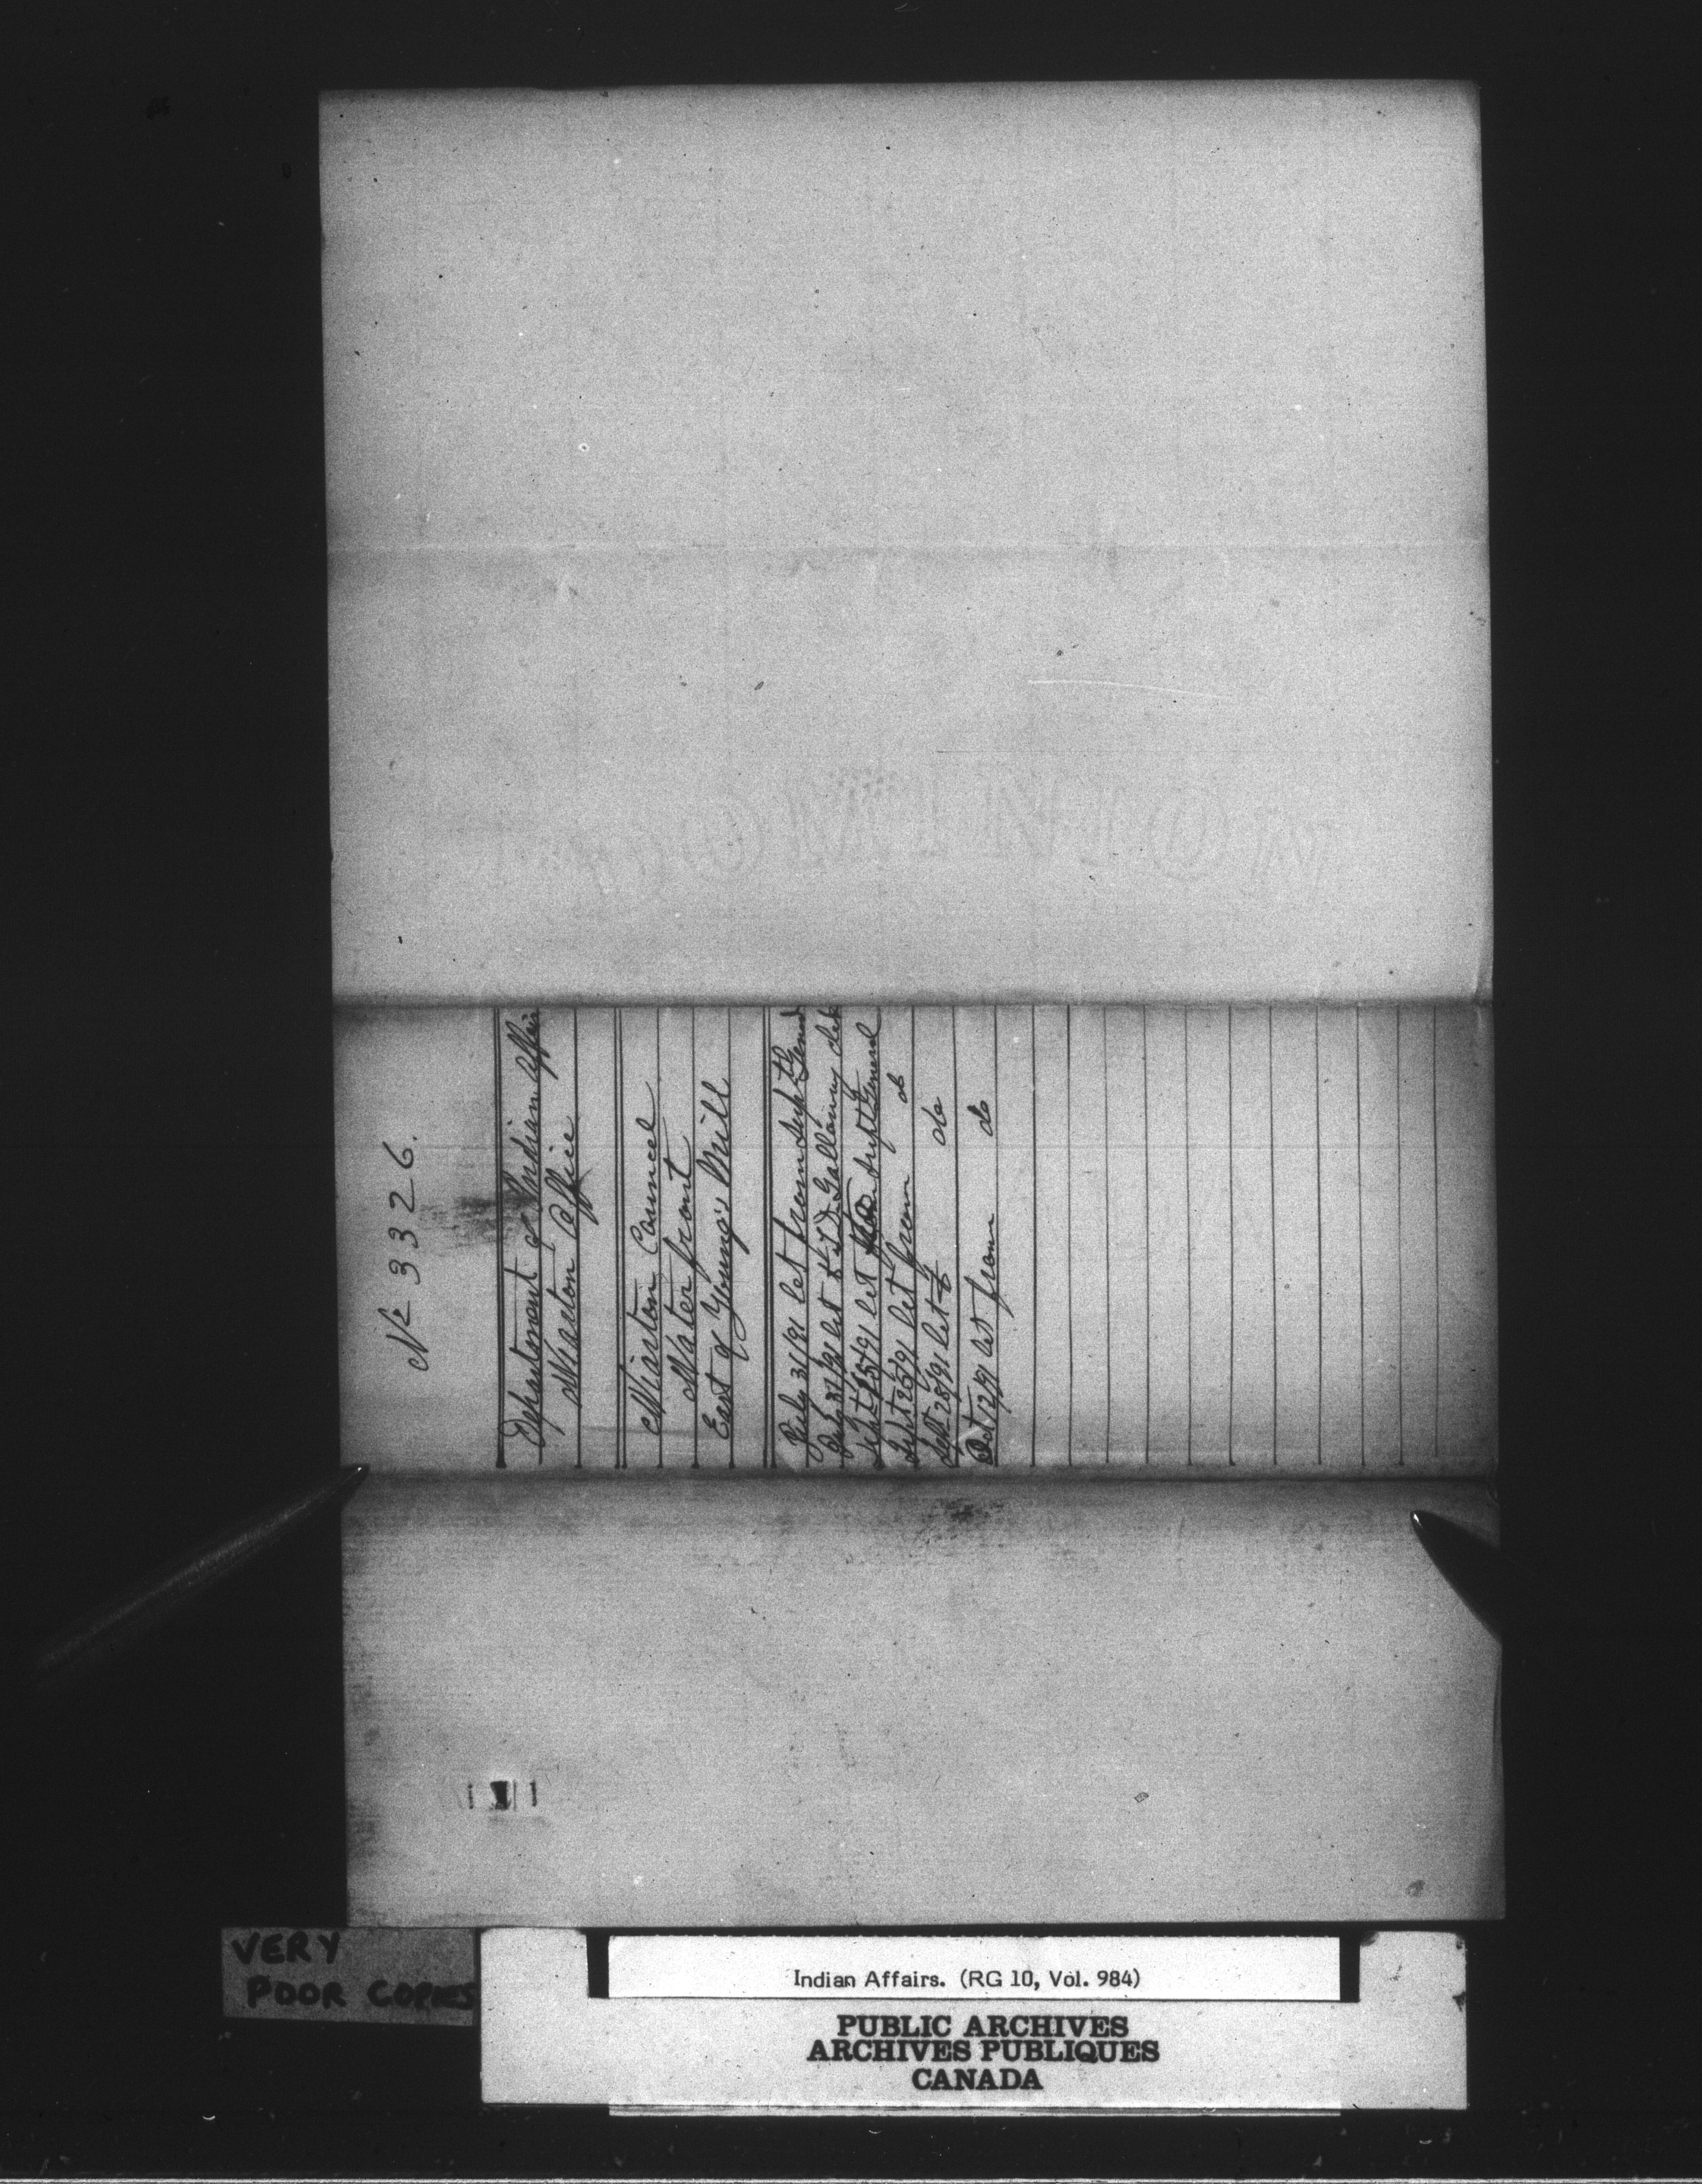 No 3326.
Department of Indian Affairs
Wiarton Office
Wiarton Council
Water front
East of Young's Mill
July 31/91 let from Supt Genl
July 31/91 let to Gallaway
Sept 15/91 let Supt General
Sept 25/91 let from do
Sept 28/91 let to do
Oct 12/91 let from do
DOMINION
VERY
POOR COPIES
Indian Affairs. (RG 10, Vol. 984)
PUBLIC ARCHIVES
ARCHIVES PUBLIQUES
CANADA